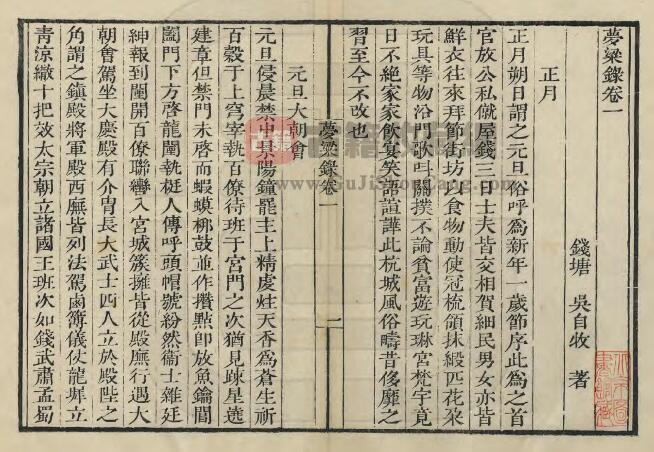 夢粱錄卷一
錢塘 吳自牧 著
正月
正月朔日謂之元旦俗呼爲新年一歲節序此爲之首
官放公私僦屋錢三日士夫皆交相賀細民男女亦皆
鮮衣往來拜節街坊以食物動使冠梳領抹緞匹花朶
玩具等物沿門歌叫關撲不論貧富遊玩琳宮梵宇竟
日不絕家家飲宴笑語諠譁此杭城風俗疇昔侈靡之
習至今不改也
夢粱錄卷一
一
元旦大朝會
元旦侵晨禁中景陽鐘罷主上精虔炷天香爲蒼生祈
百穀于上穹宰執百僚待班于宮門之次猶見疎星遶
建章但禁門未啓而蝦蟆梆鼓並作攢點卽放魚鑰開
闔門下方啓龍闈執梃人傳呼頭帽號紛然衞士雜廷
紳報到閶開百僚聯轡入宮城簇擁皆從殿廡行遇大
朝會駕坐大慶殿有介冑長大武士四人立於殿陛之
角謂之鎭殿將軍殿西廡皆列法駕鹵簿儀仗龍墀立
靑涼繖十把效太宗朝立諸國王班次如錢武肅孟蜀
古籍
www.GuJiShuFang.com